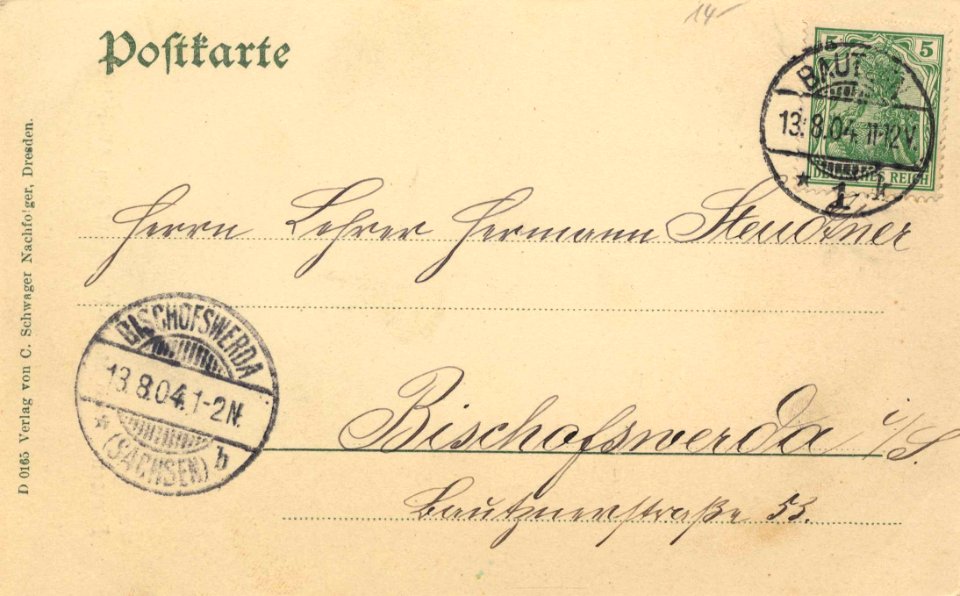 14-
Postkarte
5 5
BAUTZEN
13.8.04. 11-12V.
* 1 k
DEUTSCHES REICH
Herrn Lehrer Hermann Steudtner
BISCHOFSWERDA
13.8.04. 1-2N.
* (SACHSEN) b
Bischofswerda i/S.
Bautznerstraße 53.
D 0165 Verlag von C. Schwager Nachfolger, Dresden.